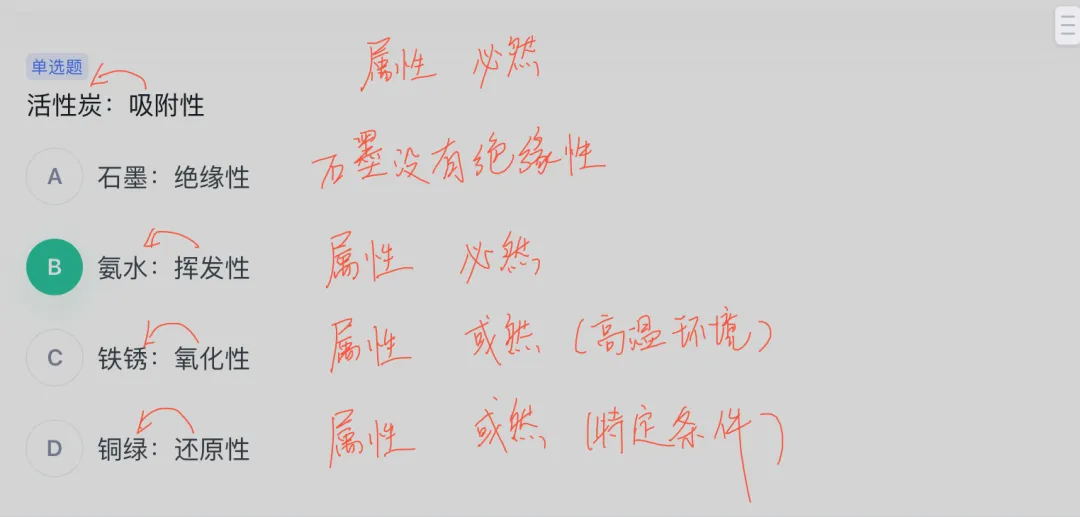 属性 必然
单选题
活性炭：吸附性
A 石墨：绝缘性 石墨没有绝缘性
B 氨水：挥发性 属性 必然
C 铁锈：氧化性 属性 或然（高温环境）
D 铜绿：还原性 属性 或然（特定条件）